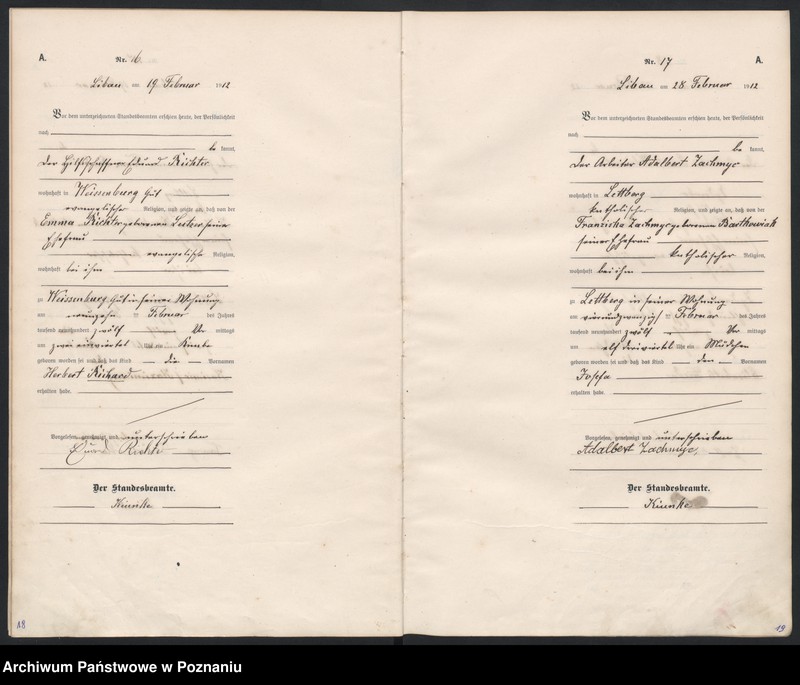 A.
Nr. 16.
Libau am 19 Februar 1912
Vor dem unterzeichneten Standesbeamten erschien heute, der Persönlichkeit
nach
be kannt,
der Hilfsschaffner Eduard Richter
wohnhaft in Weissenburg Gut
evangelischer Religion, und zeigte an, daß von der
Emma Richter geborenen seiner
Ehefrau
evangelischer Religion,
wohnhaft bei ihm
zu Weissenburg Gut in seiner Wohnung
am neunzehn ten Februar des Jahres
tausend neunhundert zwölf Vor mittags
um zwei einviertel Uhr ein Knabe
geboren worden sei und daß das Kind die Vornamen
Herbert Richard
erhalten habe.
Vorgelesen, genehmigt und unterschrieben
Eduard Richter
Der Standesbeamte.
18
A.
Nr. 17
Libau am 28 Februar 1912
Vor dem unterzeichneten Standesbeamten erschien heute, der Persönlichkeit
nach
be kannt,
der Arbeiter Adalbert Zachmyc
wohnhaft in Lettberg
katholischer Religion, und zeigte an, daß von der
Franziska Zachmyc geborenen Bartkowiak
seiner Ehefrau
katholischer Religion,
wohnhaft bei ihm
zu Lettberg in seiner Wohnung
am vierundzwanzigsten Februar des Jahres
tausend neunhundert zwölf Vor mittags
um elf dreiviertel Uhr ein Mädchen
geboren worden sei und daß das Kind den Vornamen
Josefa
erhalten habe.
Vorgelesen, genehmigt und unterschrieben
Adalbert Zachmyc,
Der Standesbeamte.
19
Archiwum Państwowe w Poznaniu